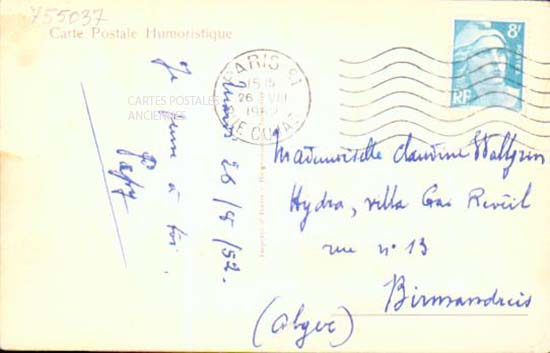 755037
Carte Postale Humoristique
PARIS 81
15H
26 VIII
19
RUE
8F
RF
CARTES POSTALES
ANCIENNES
26/8/52.
Je pense à toi.
Papy
Mademoiselle Claudine Wallgren
Hydra, villa Gai Réveil
rue n° 13
Birmandreis
(Alger)